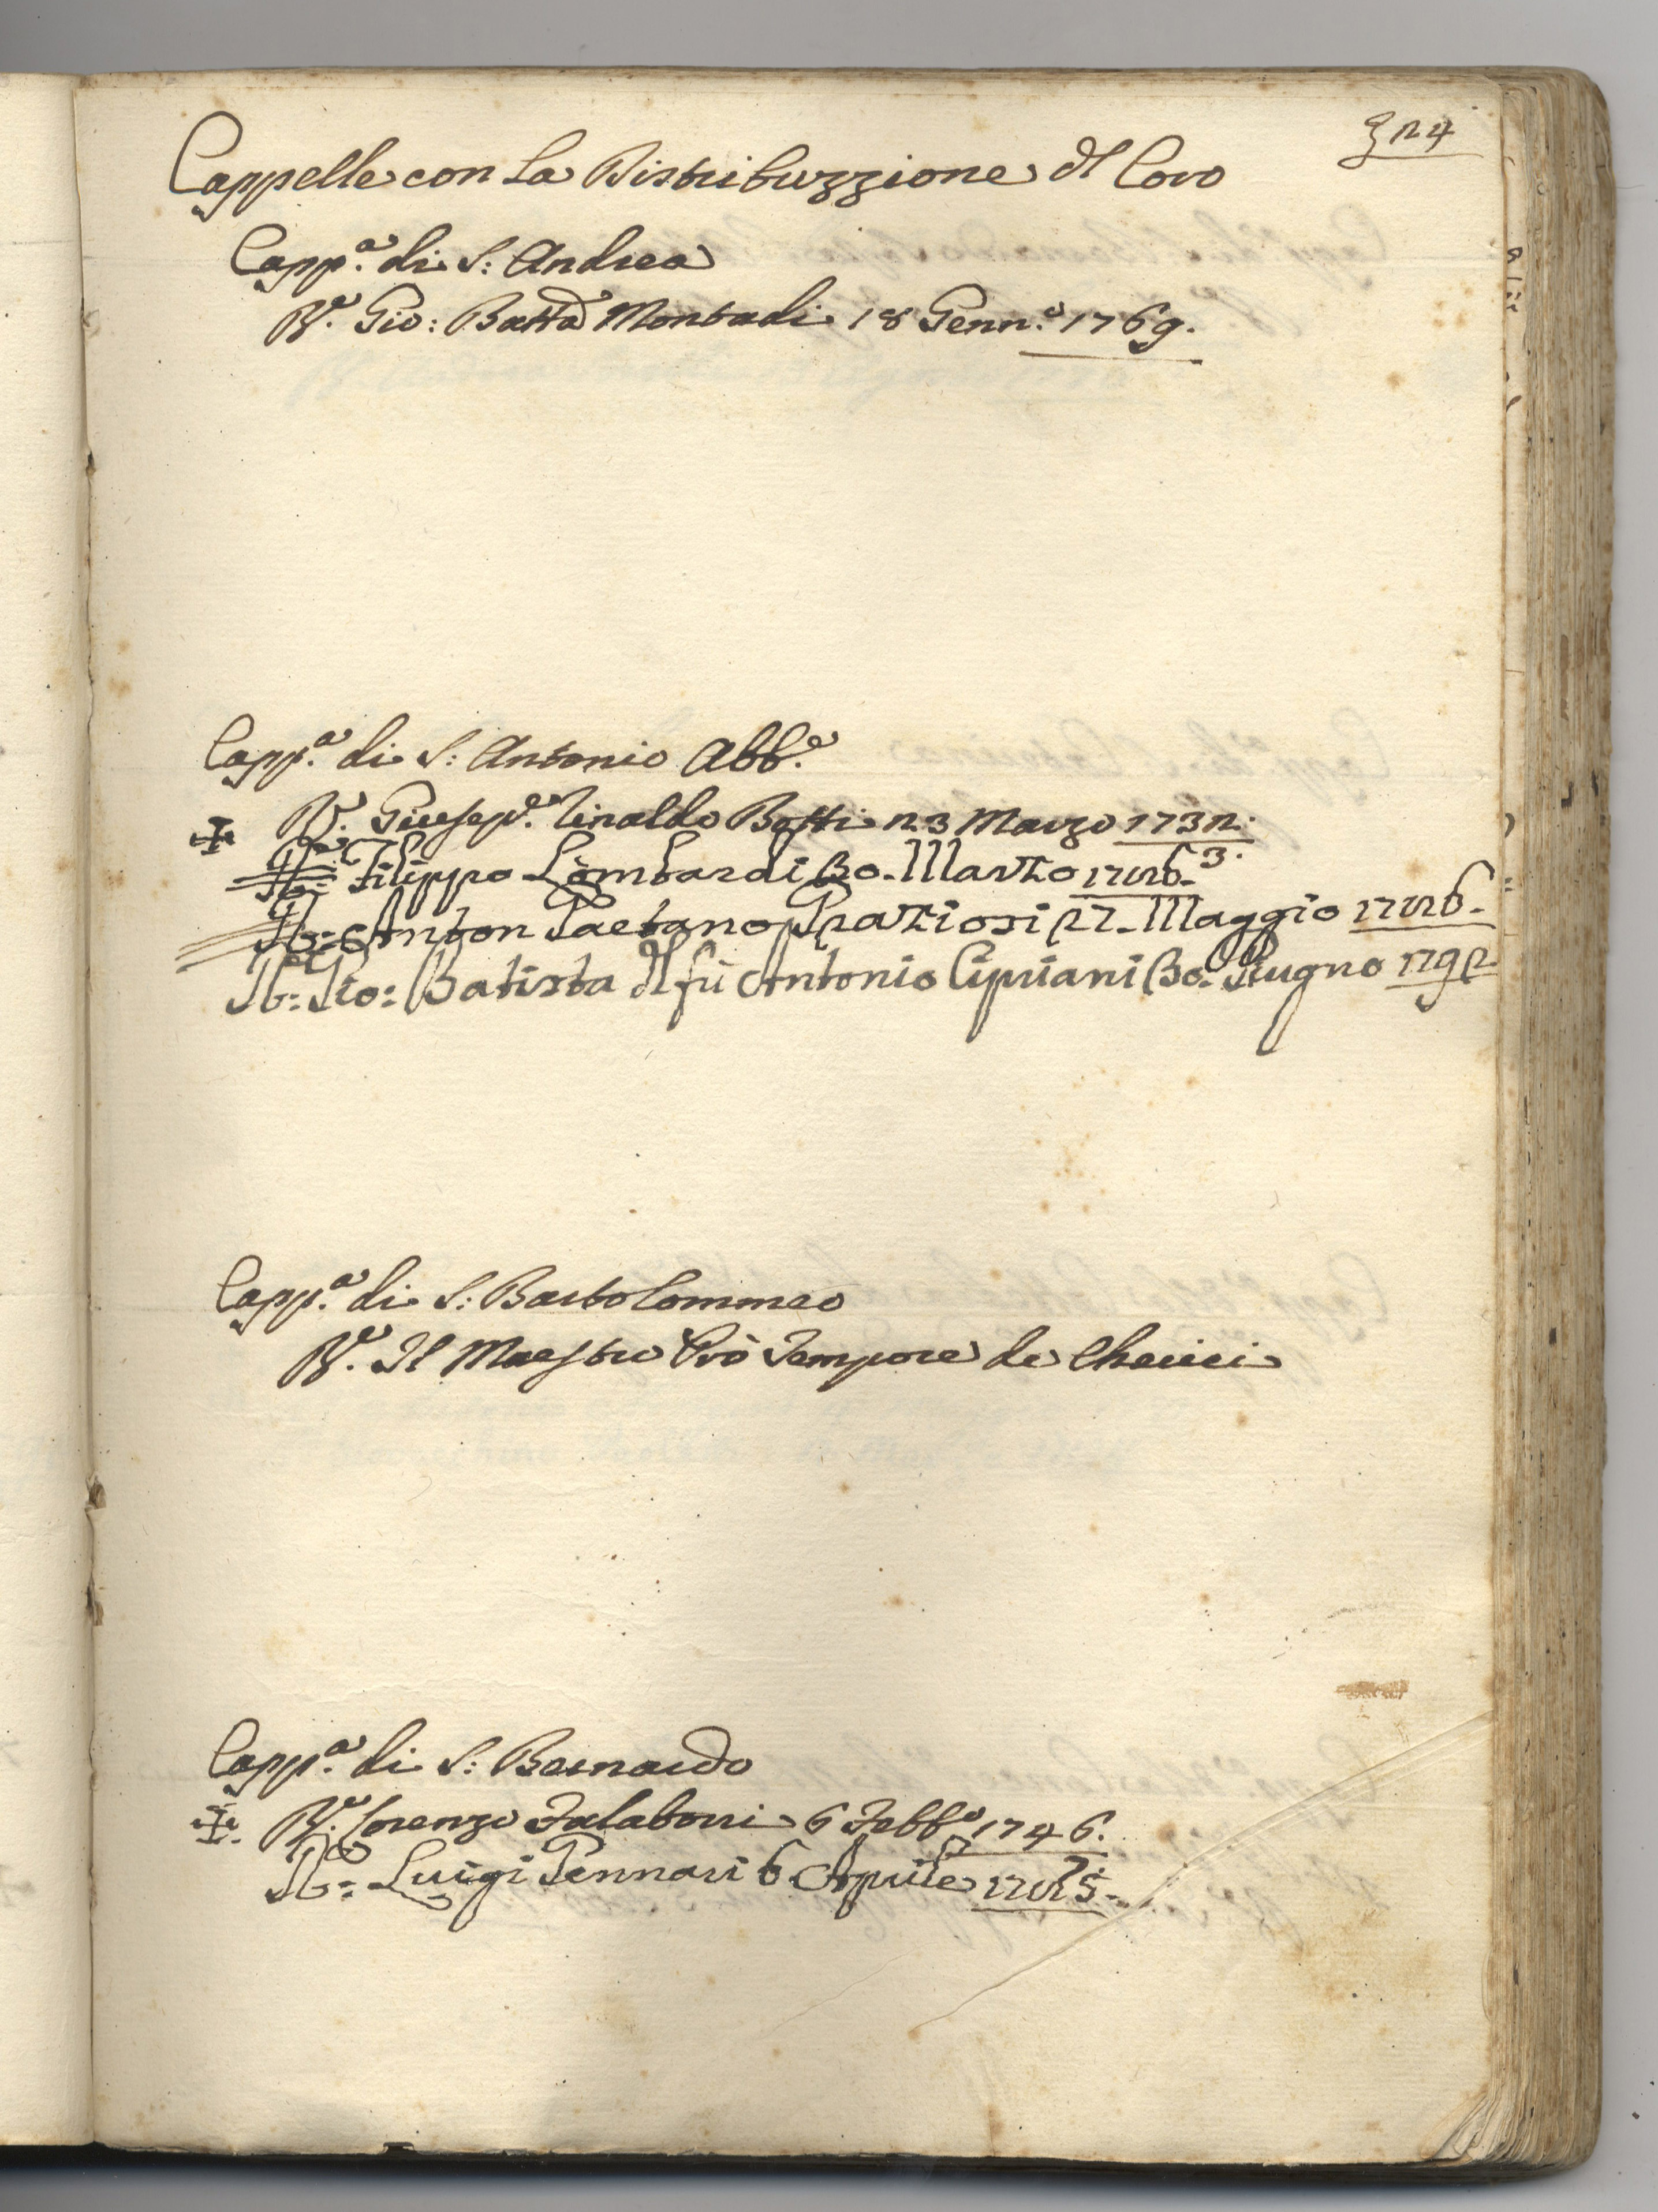 324
Cappelle con La Distribuzzione dl Coro
Capp.a di S: Andrea
R.e Gio: Batta Montadi 18 Genn.o 1769.
Capp.a di S: Antonio Abb.e
✠ R.e Giusep.e Rinaldo Botti 23 Marzo 1732.
R.e Filippo Lombardi 30. Marzo
R.e Anton Gaetano Graziosi 27. Maggio
R.e Gio: Batista dl fù Antonio Cipriani 30. Giugno 1792
Capp.a di S: Bartolommeo
R.e Il Maestro Prò Tempore de Cherici
Capp.a di S: Bernardo
✠ R.e Lorenzo Falaboni 6 Febb.o 1746.
R.e Luigi Gennari 6 Aprile